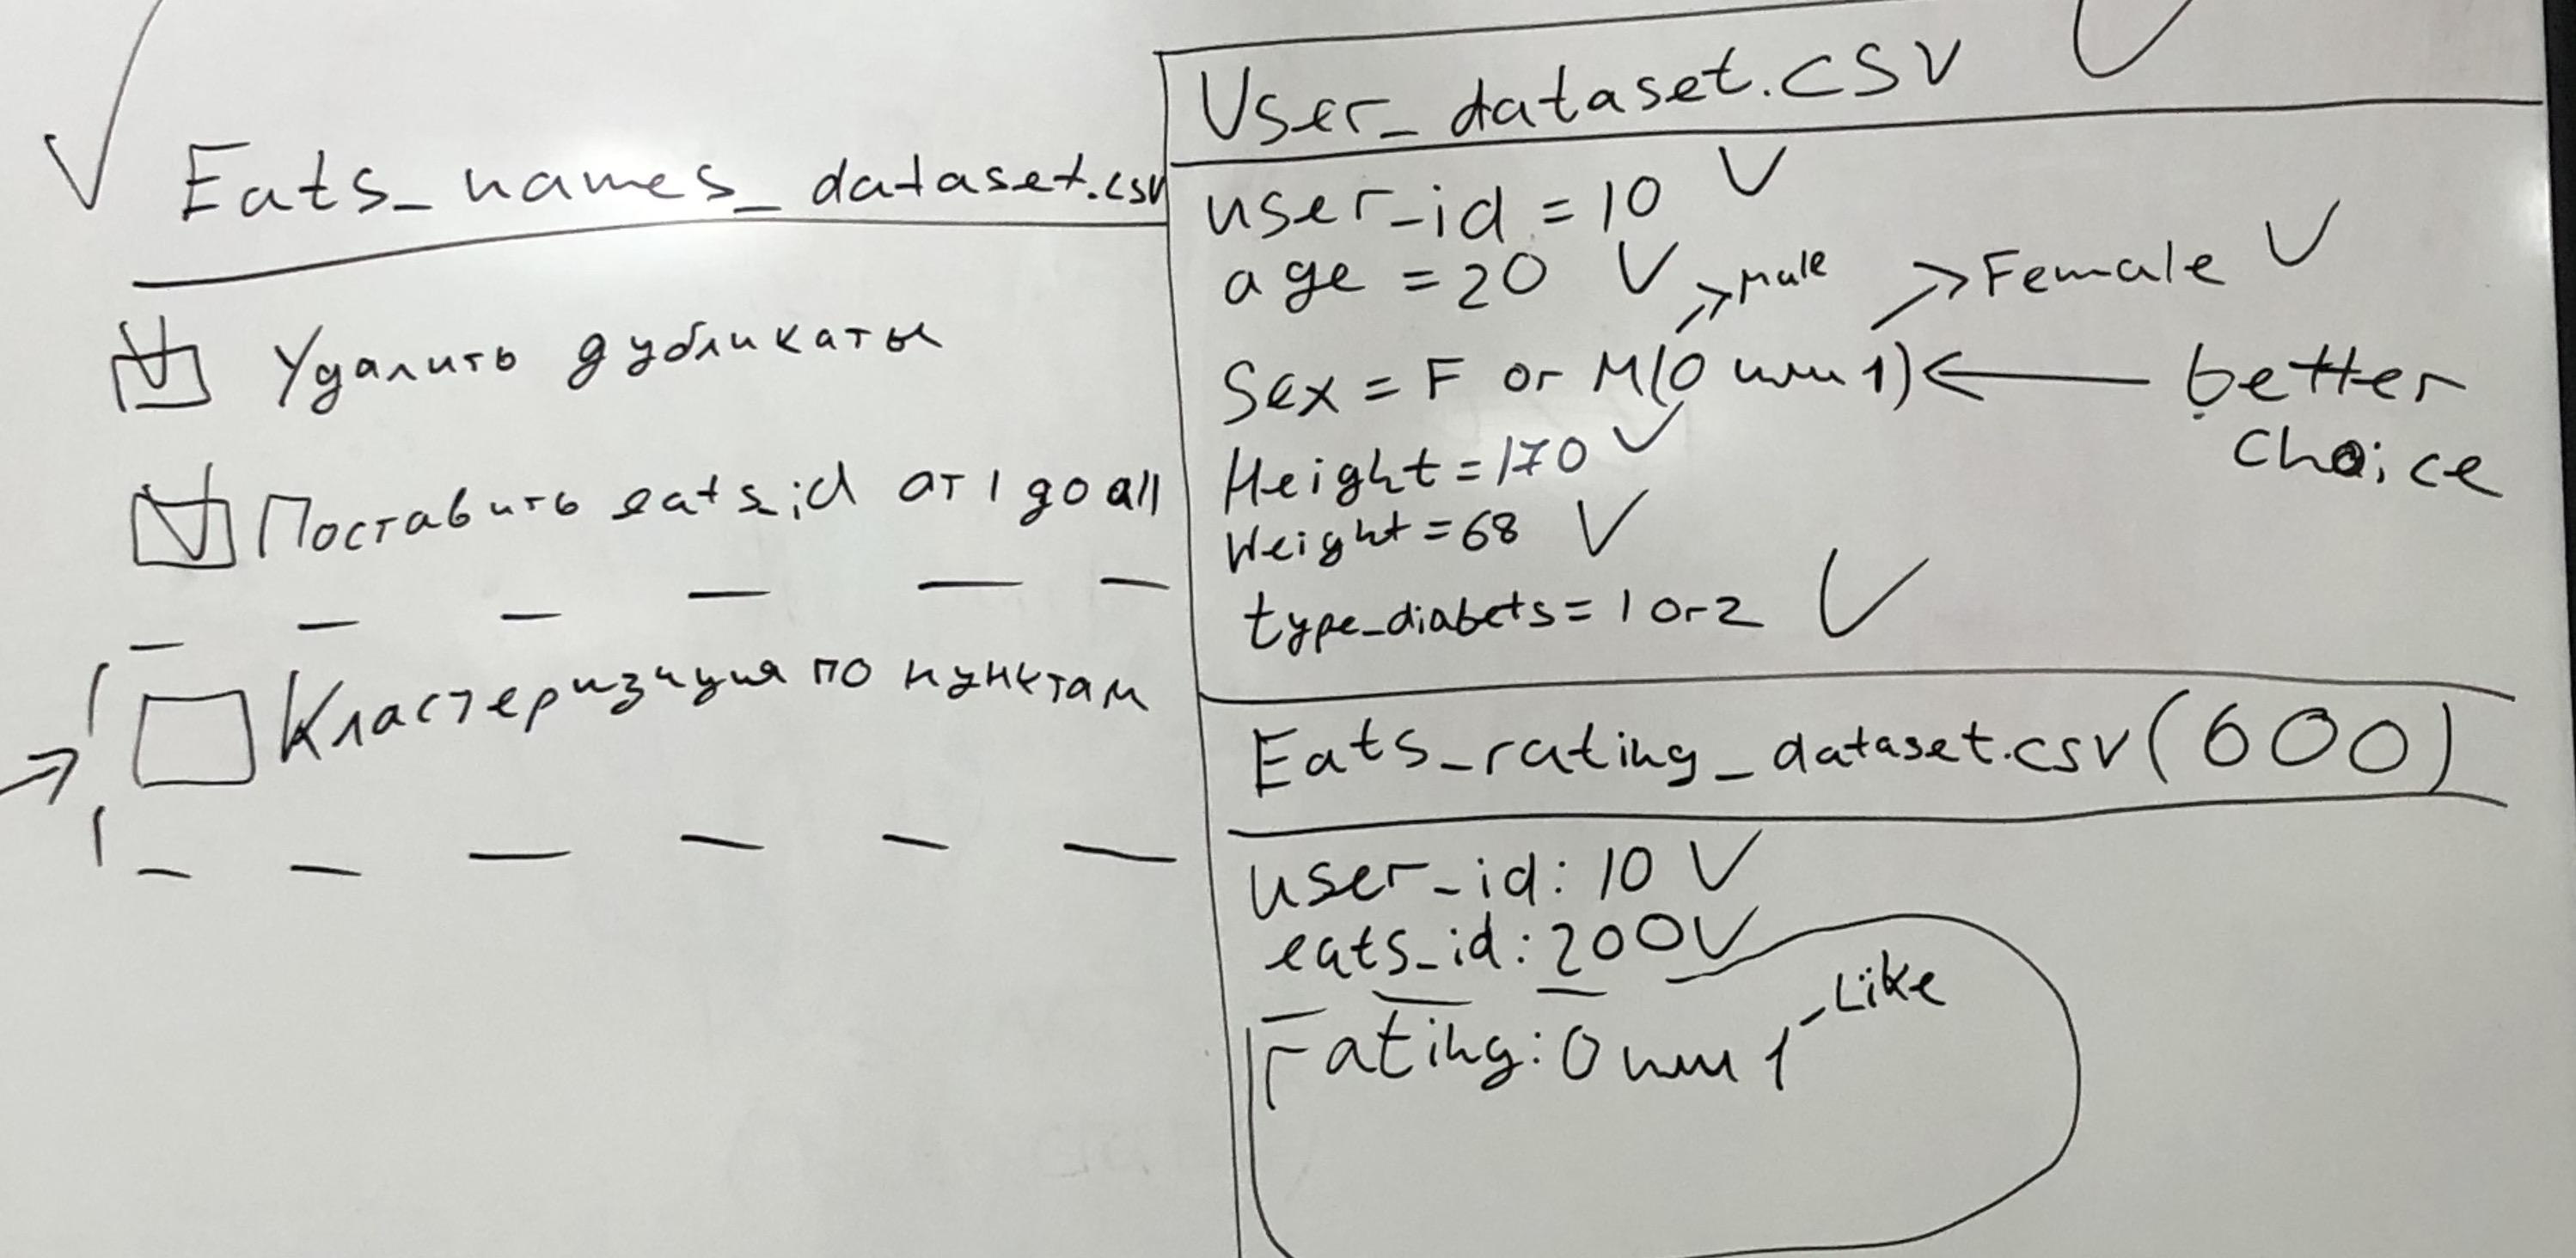 Eats_names_dataset.csv
Удалить дубликаты
Поставить eats_id от 1 до all
Кластеризация по пунктам
User_dataset.csv
user_id = 10
age = 20
Male
Female
Sex = F or M(0 или 1)
better
choice
Height = 170
Weight = 68
type_diabets = 1 or 2
Eats_rating_dataset.csv (600)
user_id: 10
eats_id: 200
Like
rating: 0 или 1